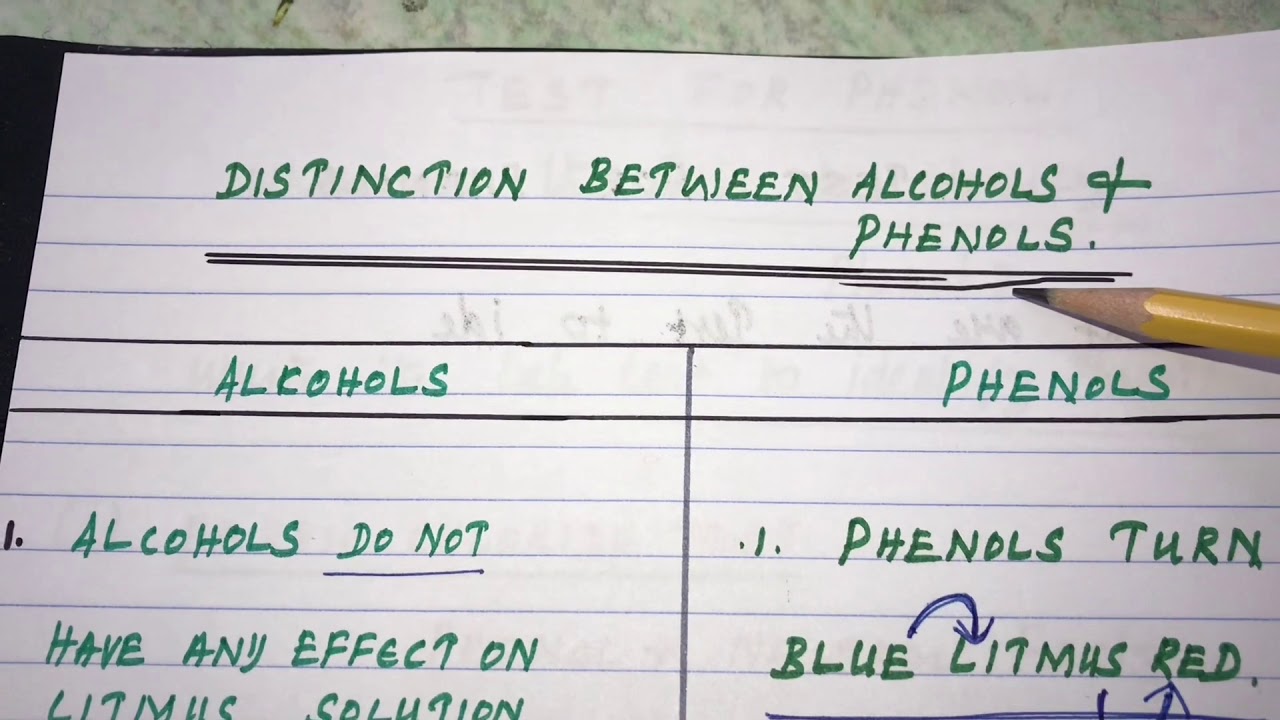 DISTINCTION BETWEEN ALCOHOLS &
PHENOLS.
ALKOHOLS
PHENOLS
1. ALCOHOLS DO NOT
HAVE ANY EFFECT ON
LITMUS SOLUTION
.1. PHENOLS TURN
BLUE LITMUS RED.